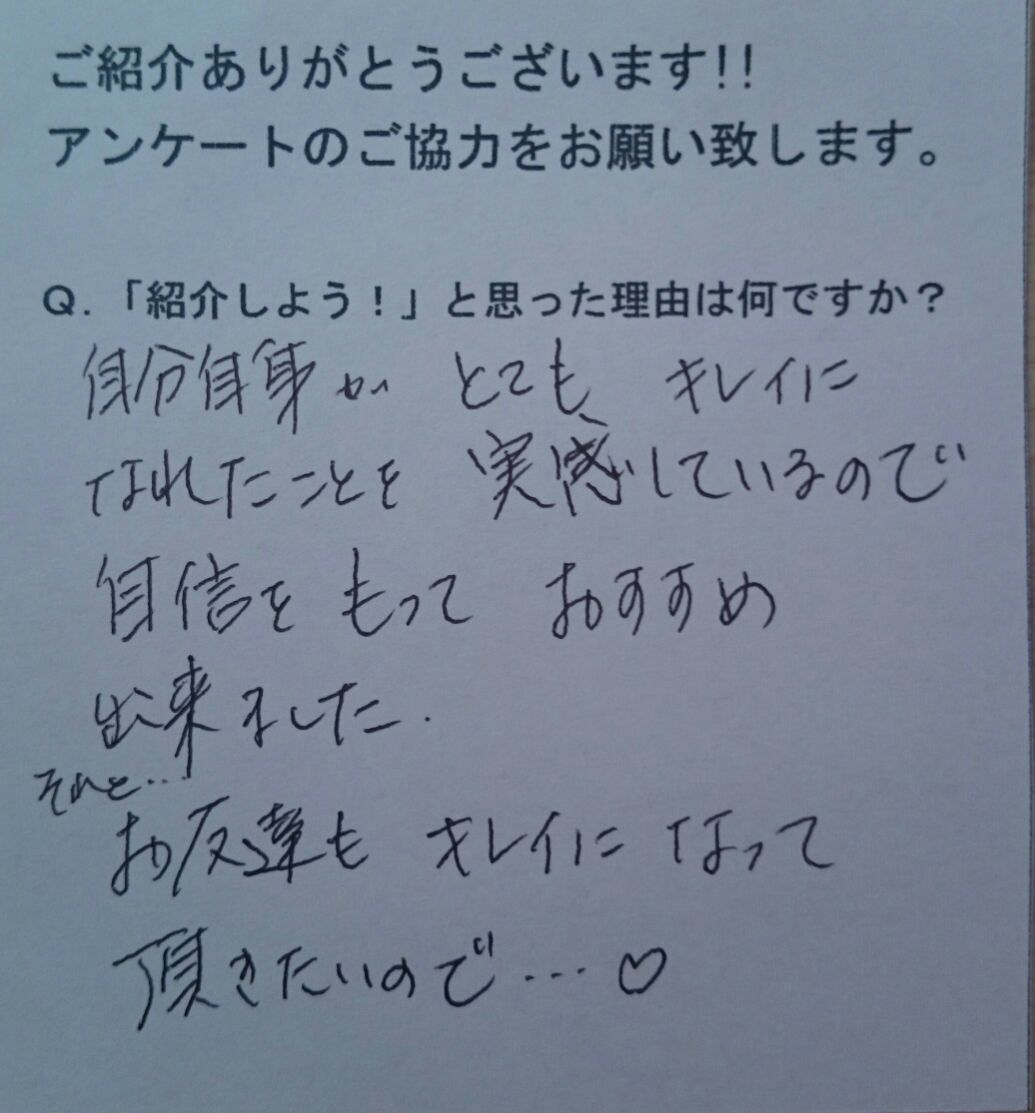 ご紹介ありがとうございます!!
アンケートのご協力をお願い致します。
Q.「紹介しよう！」と思った理由は何ですか？
自分自身が とても、キレイに
なれたことを 実感しているので
自信を もって おすすめ
出来ました.
それと...
お友達も キレイに なって
頂きたいので...♡